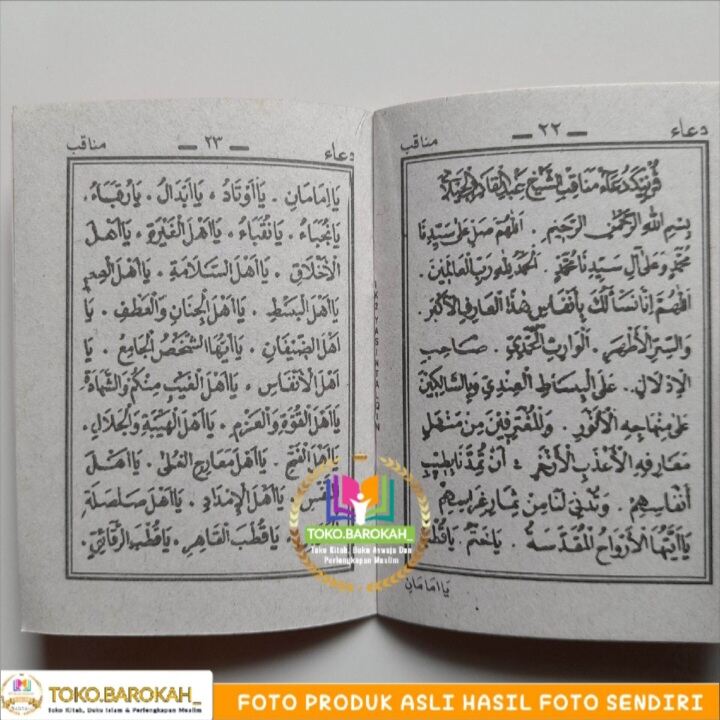 دعاء — ٢٢ — مناقب
فونيكا دعاء مناقب الشيخ عبد القادر الجيلا
بِسْمِ اللهِ الرَّحْمٰنِ الرَّحِيْمِ . اَللّٰهُمَّ صَلِّ عَلَى سَيِّدِنَا
مُحَمَّدٍ وَعَلَى آلِ سَيِّدِنَا مُحَمَّدٍ . اَلْحَمْدُ لِلّٰهِ رَبِّ الْعَالَمِيْنَ .
اَللّٰهُمَّ إِنَّا نَسْأَلُكَ بِأَنْفَاسِ هٰذَا الْعَارِفِ الْأَكْبَرِ .
وَالسِّرِّ الْأَطْهَرِ . اَلْوَارِثِ الْمُحَمَّدِيِّ . صَاحِبِ
الْإِدْلَالِ . عَلَى الْبِسَاطِ الْعِنْدِيِّ وَبِالسَّالِكِيْنَ
عَلَى مِنْهَاجِهِ الْأَنْوَرِ . وَالْمُغْتَرِفِيْنَ مِنْ مَنْهَلِ
مَعَارِفِهِ الْأَعْذَبِ الْأَزْخَرِ : أَنْ تُمِدَّنَا بِطِيْبِ
أَنْفَاسِهِمْ . وَتُدْنِيَ لَنَا مِنْ ثِمَارِ غِرَاسِهِمْ
يَا أَيَّتُهَا الْأَرْوَاحُ الْمُقَدَّسَةُ . يَا خَتْمُ . يَا قُطْبُ
يَا إِمَامَانِ
دعاء — ٢٣ — مناقب
يَا إِمَامَانِ . يَا أَوْتَادُ . يَا أَبْدَالُ . يَا رُقَبَاءُ .
يَا نُجَبَاءُ . يَا نُقَبَاءُ . يَا أَهْلَ الْغَيْرَةِ . يَا أَهْلَ
الْأَخْلَاقِ . يَا أَهْلَ السَّلَامَةِ . يَا أَهْلَ الْعِلْمِ
يَا أَهْلَ الْبَسْطِ . يَا أَهْلَ الْجِنَانِ وَالْعَطْفِ . يَا
أَهْلَ الضِّيْفَانِ . يَا أَيُّهَا الشَّخْصُ الْجَامِعُ . يَا
أَهْلَ الْأَنْفَاسِ . يَا أَهْلَ الْغَيْبِ مِنْكُمْ وَالشَّهَادَةِ
يَا أَهْلَ الْقُوَّةِ وَالْعَزْمِ . يَا أَهْلَ الْهَيْبَةِ وَالْجَلَالِ .
يَا أَهْلَ الْفَتْحِ . يَا أَهْلَ مَعَارِجِ الْعُلَى . يَا أَهْلَ
النَّفَسِ . يَا أَهْلَ الْإِمْدَادِ . يَا أَهْلَ صَلْصَلَةِ
يَا قُطْبَ الْقَاهِرِ . يَا قُطْبَ الرَّقَائِقِ .
TOKO.BAROKAH_
Toko Kitab, Buku Aswaja Dan
Perlengkapan Muslim
TOKO.BAROKAH_
Toko Kitab, Buku Islam & Perlengkapan Muslim
FOTO PRODUK ASLI HASIL FOTO SENDIRI